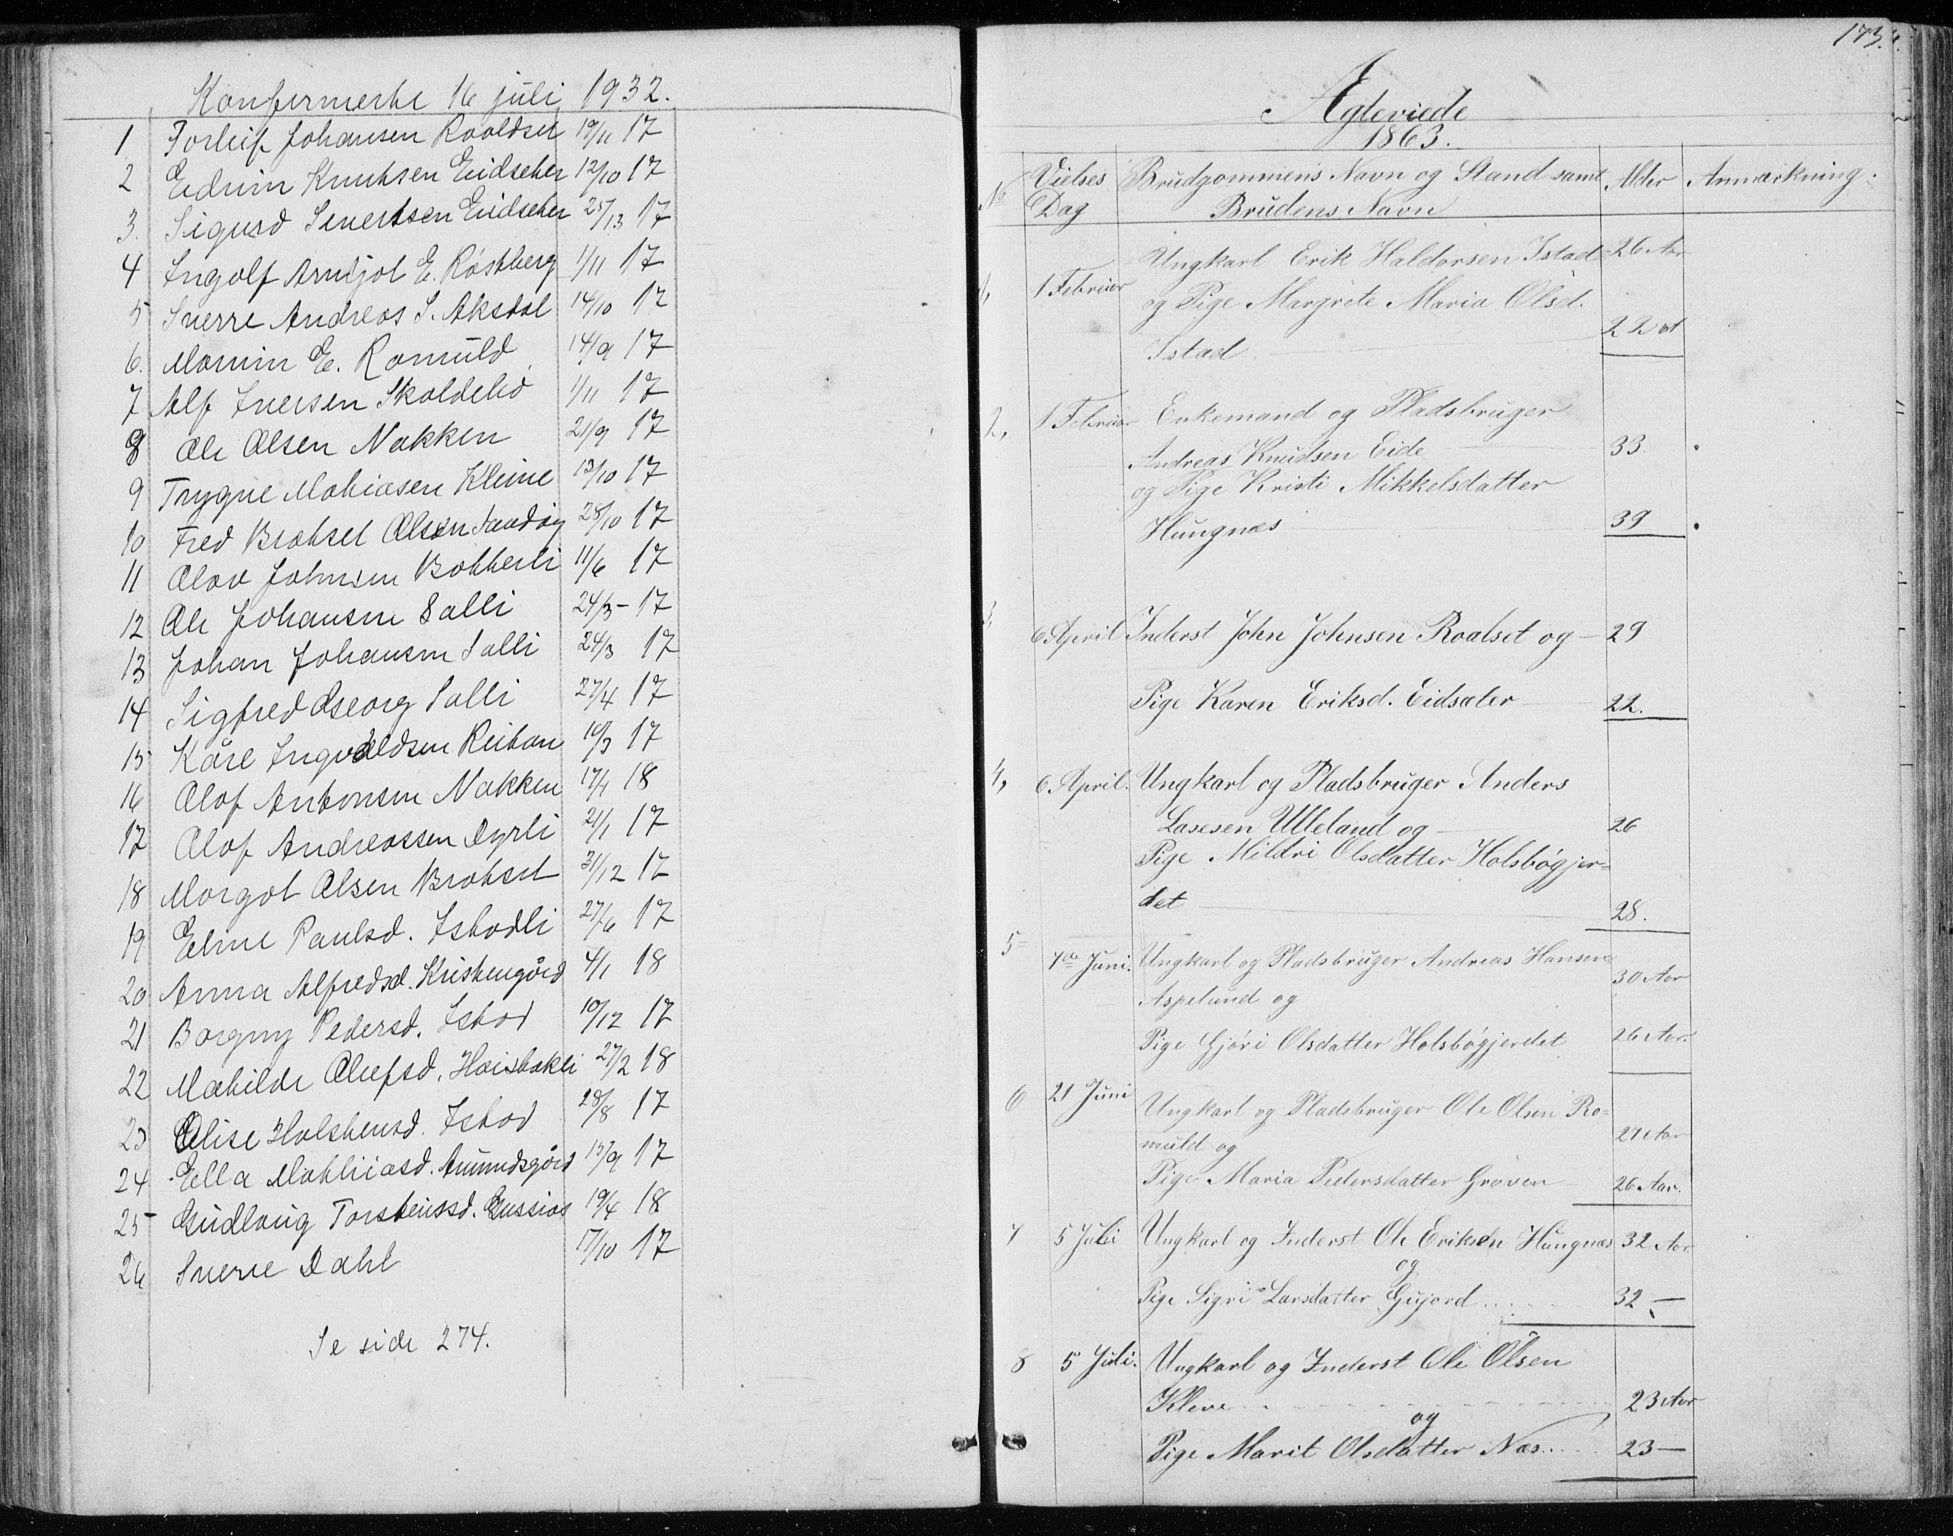 Konfirmerte 16 juli 1932.
1 Torleif Johansen Roaldset 19/11 17
2 Edvin Knutsen Eidseter 12/10 17
3. Sigurd Sivertsen Eidseter 25/13 17
4 Ingolf Arntjot E. Røstberg 1/11 17
5 Sverre Andreas S. Akslal 14/10 17
6. Marvin E. Romuld 14/9 17
7 Alf Iversen Skaldelid 1/11 17
8 Ole Olsen Nakken 21/9 17
9 Trygve Mathiasen Kleive 13/10 17
10 Fred Brokset Olsen Sandøy 28/10 17
11 Olav Johnsen Bakkerli 11/6 17
12 Ole Johansen Salli 24/3 - 17
13 Johan Johansen Salli 24/3 17
14 Sigfred Georg Salli 27/4 17
15 Kåre Ingvaldsen Reitan 10/3 17
16 Olaf Antonsen Nakken 17/1 18
17 Olaf Andreassen Dyrli 21/1 17
18 Margot Olsen Brokset 31/12 17
19 Eline Paulsd. Istadli 27/6 17
20 Anna Alfredsd. Kristengård 4/1 18
21 Borgny Pedersd. Istad 10/12 17
22 Mathilde Olufsd. Hoisbakli 27/2 18
23 Elise Holstensd. Istad 28/8 17
24 Ella Mathiasd. Amundsgård 13/9 17
25 Gudlaug Torsteinsd. Gussiås 19/4 18
26 Sverre Dahl 17/10 17
Se side 274.
173.
Ægteviede
1863.
No Vielses Dag Brudgommens Navn og Stand samt Brudens Navn Alder Anmærkning.
1, 1 Februar Ungkarl Erik Haldorsen Istad 26 Aar
og Pige Margrete Maria Olsd.
Istad 22 at
2, 1 Februar Enkemand og Pladsbruger
Andreas Knudsen Eide 33
og Pige Kristi Mikkelsdatter
Hungnæs 39
3 6 April Inderst John Johnsen Roalset og 29
Pige Karen Eriksd. Eidsæter 22.
4, 6 April. Ungkarl og Pladsbruger Anders
Lasesen Ulleland og 26
Pige Mildri Olsdatter Holsbøgjer=
det 28.
5 7de Juni. Ungkarl og Pladsbruger Andreas Hansen
Aspelund og 30 Aar
Pige Gjøri Olsdatter Holsbøgjerdet 26 Aar.
6 21 Juni Ungkarl og Pladsbruger Ole Olsen Ro=
muld og 27 Aar
Pige Maria Pedersdatter Grøven 26 Aar.
7 5 Juli Ungkarl og Inderst Ole Eriksen Hungnæs 32 Aar
og
Pige Sigri Larsdatter Gujord 32 —
8 5 Juli. Ungkarl og Inderst Ole Olsen
Kleve 23 Aar
og
Pige Marit Olsdatter Næs 23 —